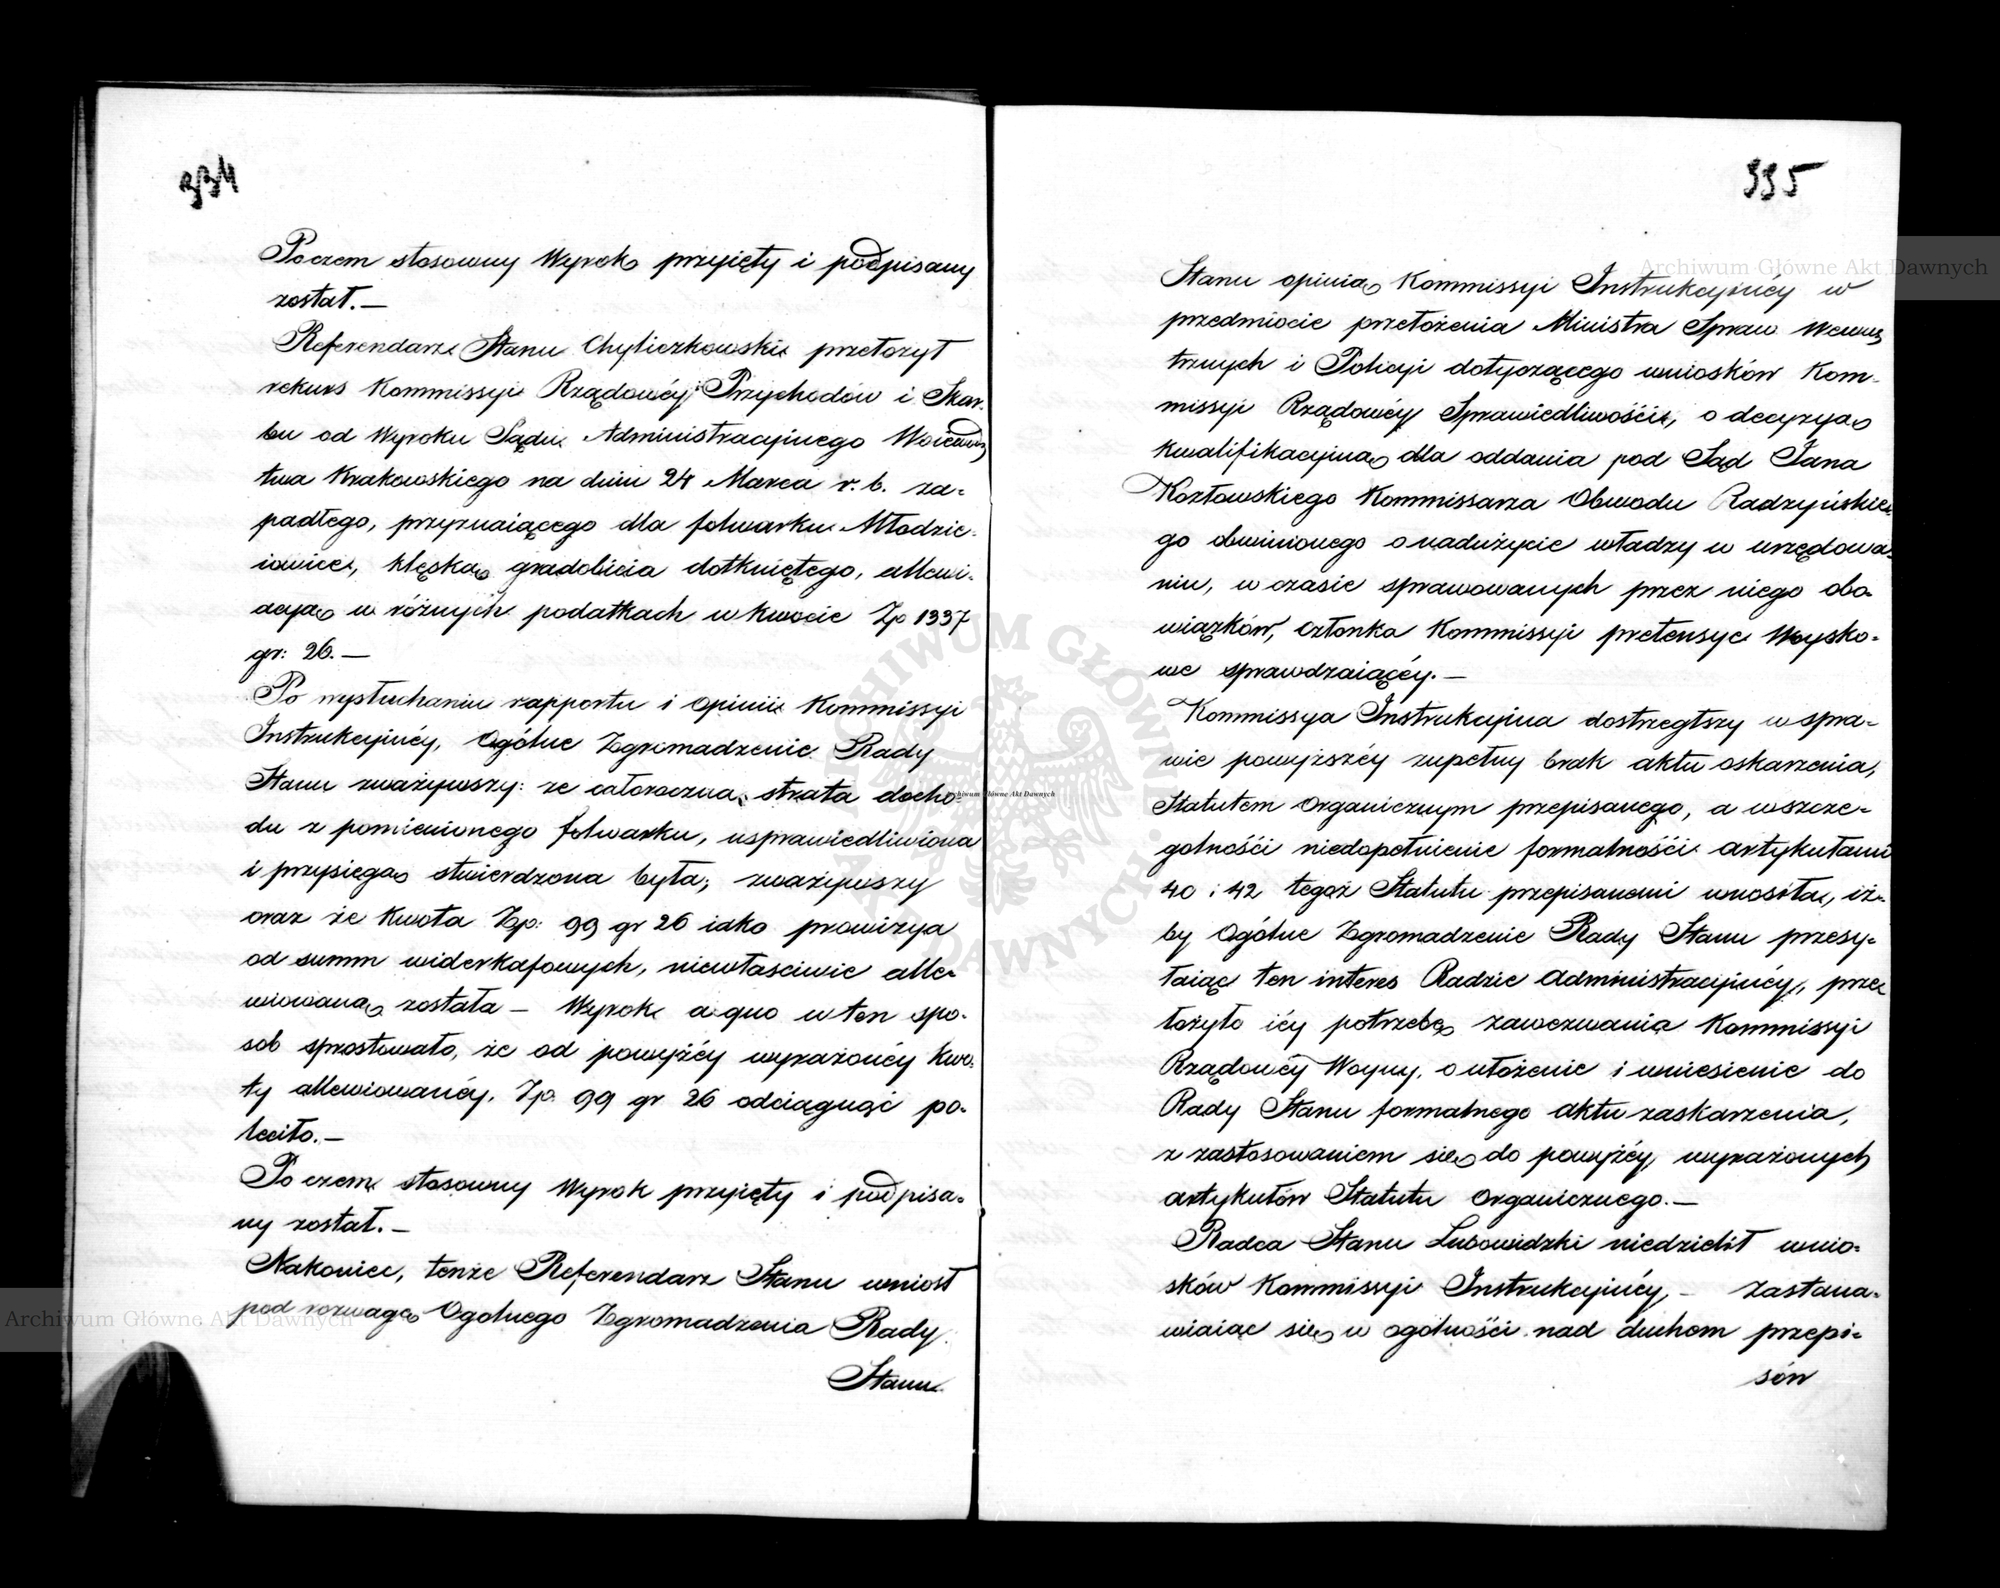 334
Poczem stosowny Wyrok przyięty i podpisany
został.—
Referendarz Stanu Chyliczkowski przełożył
rekurs Kommissyi Rządowéy Przychodów i Skar-
bu od Wyroku Sądu Administracyinego Woiewódz
twa Krakowskiego na dniu 24 Marca r. b. za-
padłego, przyznaiącego dla folwarku Młodzie-
iowice, klęską gradobicia dotkniętego, allewi-
acyą w różnych podatkach w kwocie Zp 1337
gr: 26.—
Po wysłuchaniu rapportu i opinii Kommissyi
Instrukcyinéy, Ogólne Zgromadzenie Rady
Stanu zważywszy: że całoroczna strata docho-
du z pomienionego folwarku, usprawiedliwiona
i przysięgą stwierdzona była; zważywszy
oraz że kwota Zp: 99 gr 26 iako prowizya
od summ widerkafowych, niewłaściwie alle-
wiowaną została — Wyrok a quo w ten spo-
sób sprostowało, że od powyżéy wyrażonéy kwo-
ty allewiowanéy, Zp. 99 gr 26 odciągnąć po-
leciło.—
Poczem stosowny Wyrok przyięty i podpisa-
ny został.—
Nakoniec, tenże Referendarz Stanu wniósł
pod rozwagę Ogolnego Zgromadzenia Rady
Stanu
335
Stanu opinią Kommissyi Instrukcyinéy w
przedmiocie przełożenia Ministra Spraw Wewnę
trznych i Policyi dotyczącego wniosków Kom-
missyi Rządowéy Sprawiedliwości, o decyzyą
kwalifikacyiną dla oddania pod Sąd Jana
Kozłowskiego Kommissarza Obwodu Radzyńskie-
go obwinionego o nadużycie władzy w urzędowa-
niu, w czasie sprawowanych przez niego obo-
wiązków, członka Kommissyi pretensye Woysko-
we sprawdzaiącéy.—
Kommissya Instrukcyina dostrzegłszy w spra-
wie powyższéy zupełny brak aktu oskarzenia,
Statutem Organicznym przepisanego, a wszcze-
golności niedopełnienie formalności artykułami
40 i 42 tegoż Statutu przepisanemi wnosiła, iż-
by Ogólne Zgromadzenie Rady Stanu przesy-
łaiąc ten interes Radzie Administracyinéy, prze
łożyło iéy potrzebę zawezwania Kommissyi
Rządowéy Woyny, o ułożenie i wniesienie do
Rady Stanu formalnego aktu zaskarzenia,
z zastosowaniem się do powyżéy wyrażonych
artykułów Statutu Organicznego.—
Radca Stanu Lubowidzki niedzielił wnio-
sków Kommissyi Instrukcyinéy, — Zastana-
wiaiąc się w ogólności nad duchem przepi-
sów
Archiwum Główne Akt Dawnych
Archiwum Główne Akt Dawnych
Archiwum Główne Akt Dawnych
ARCHIWUM GŁÓWNE AKT DAWNYCH